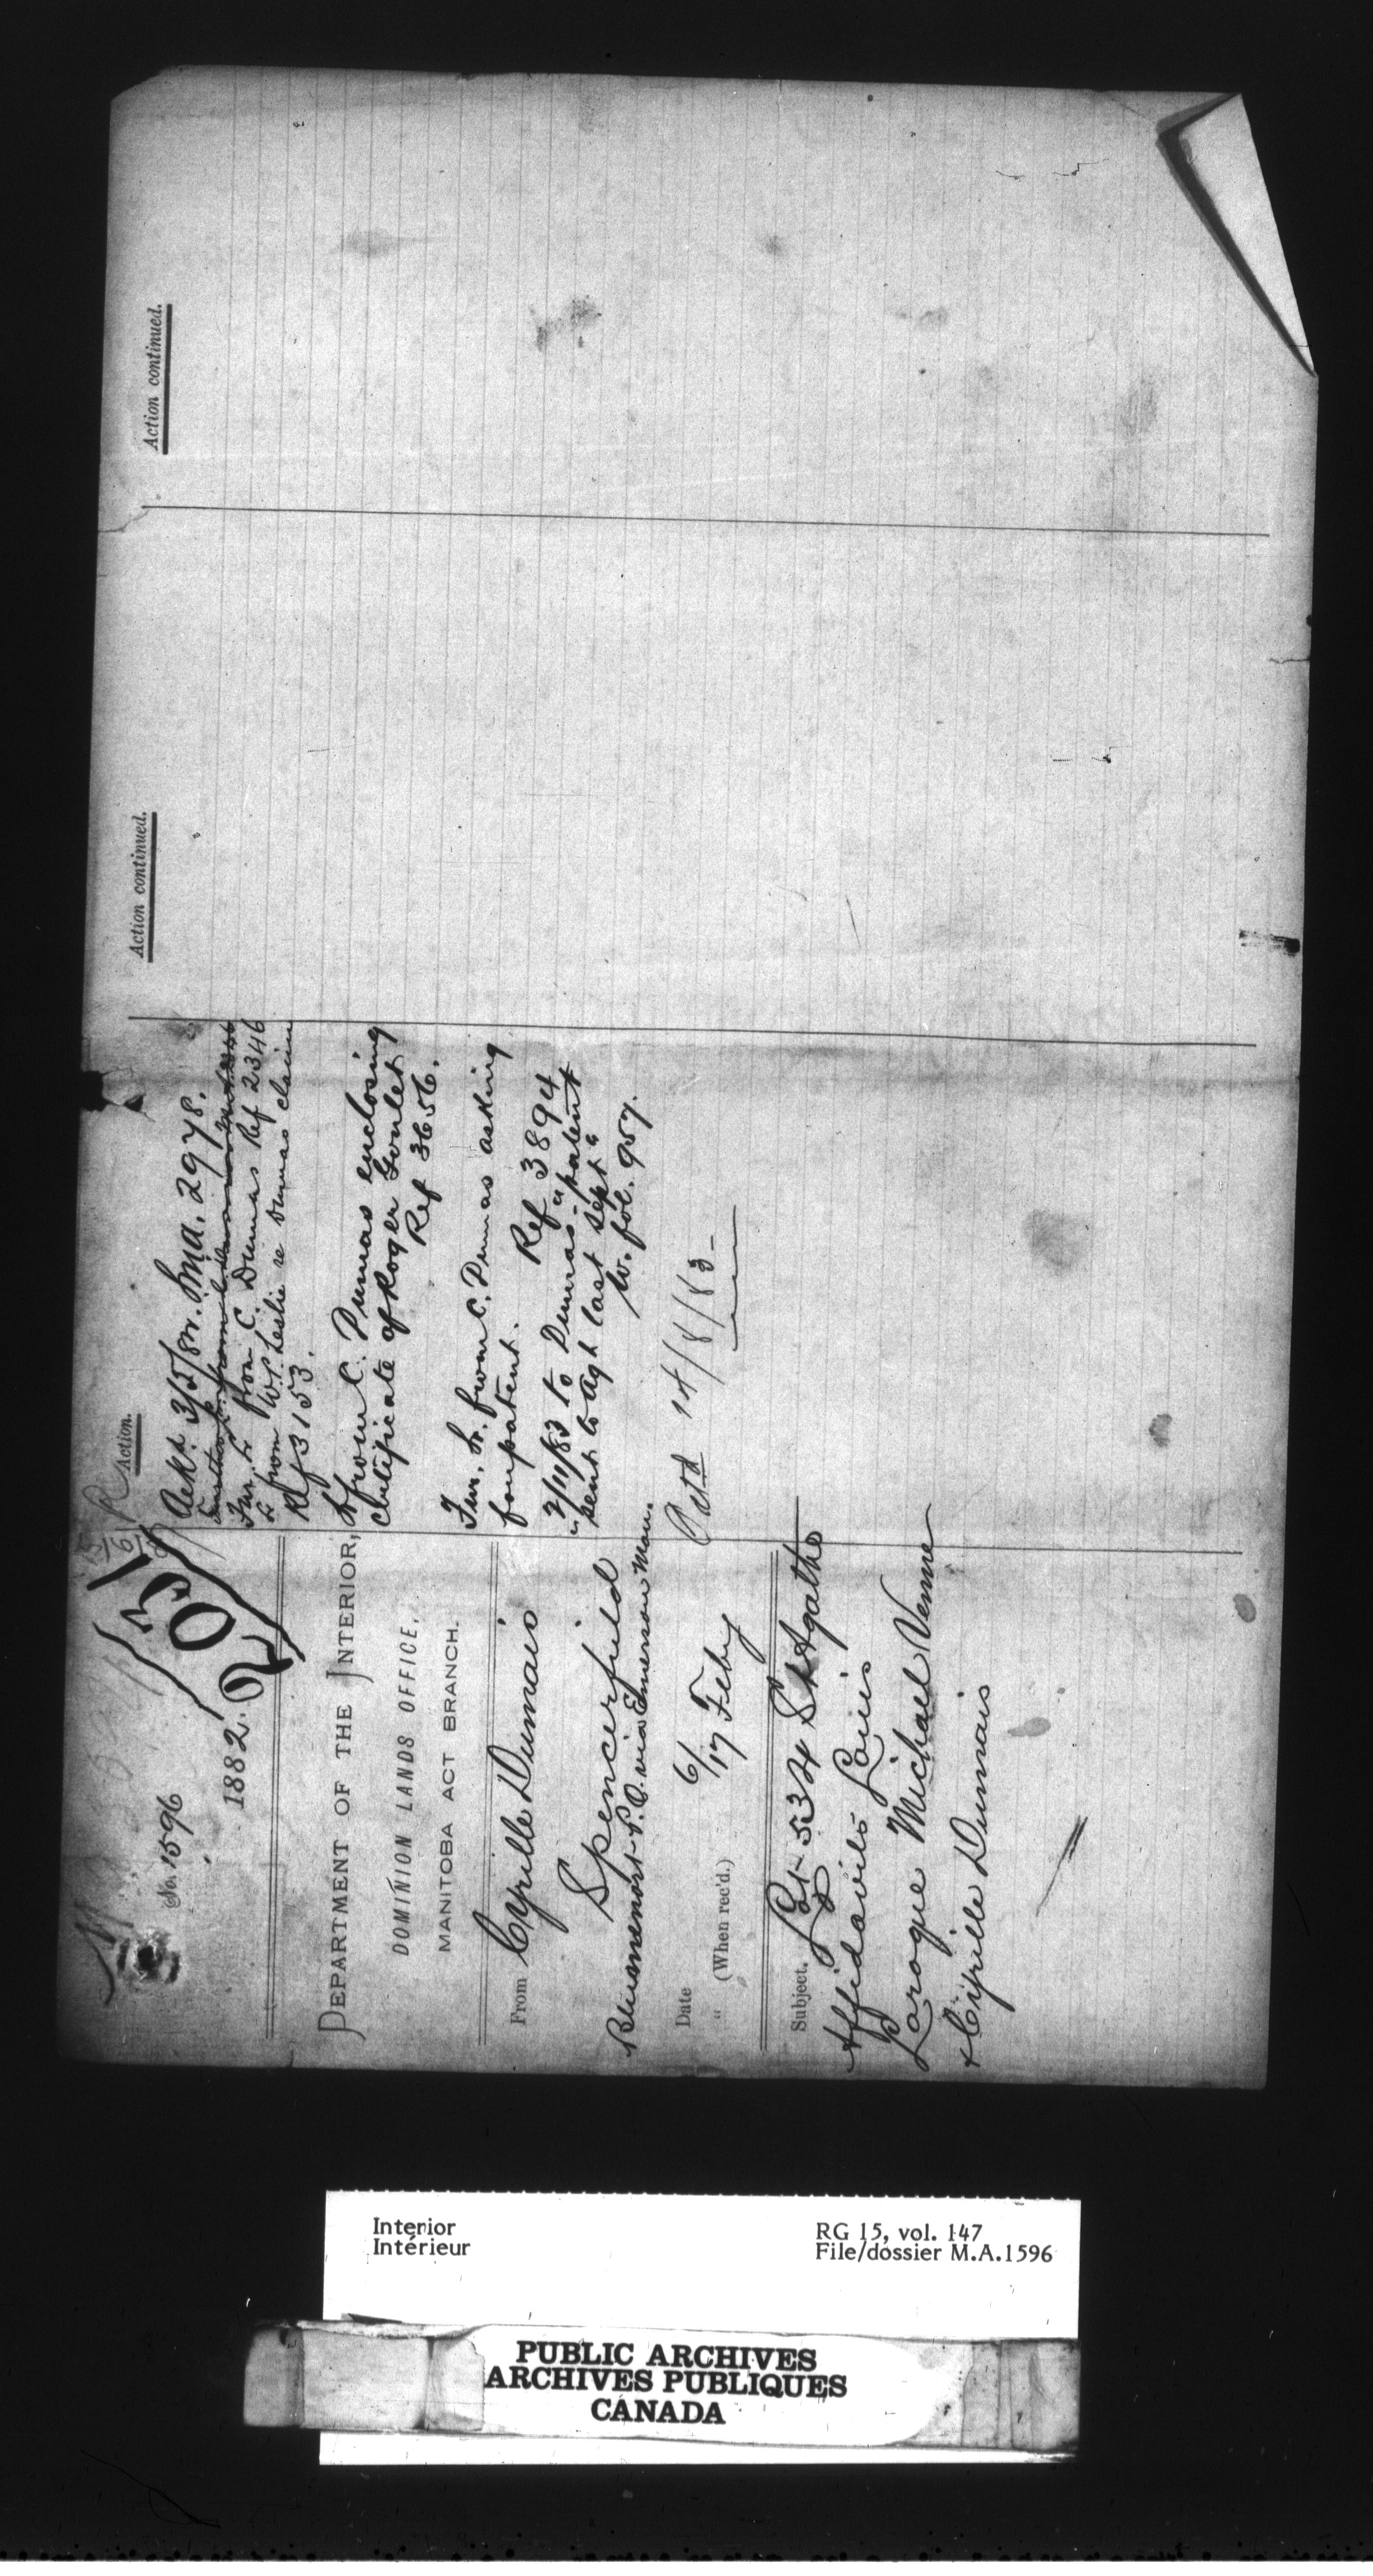 No. 1596
1882.
203
DEPARTMENT OF THE INTERIOR,
DOMINION LANDS OFFICE,
MANITOBA ACT BRANCH.
From Cyrille Dumais
Spencerfield
P.O. via Emerson Man.
Date 6/
" (When rec'd.) 17 Feby
Subject. Lot 534 St Agathe
Affidavits Louis
Laroque Michael Venne
& Cyrille Dumais
R
Action.
Ackd 3/5/82. Ma. 2978.
Fur. Lr from C. Dumas Ref 2346
Lr from W. Leslie re Dumas claim
Ref 3153.
Lr from C. Dumas enclosing
certificate of Roger Goulet
Ref 3656.
Fur. Lr. from C. Dumas asking
for patent. Ref 3894
2/11/83 to Dumas - "patent
sent to agt last sept"
W. fol. 957.
Patd 14/8/83-
Action continued.
Action continued.
Interior
Intérieur
RG 15, vol. 147
File/dossier M.A.1596
PUBLIC ARCHIVES
ARCHIVES PUBLIQUES
CANADA